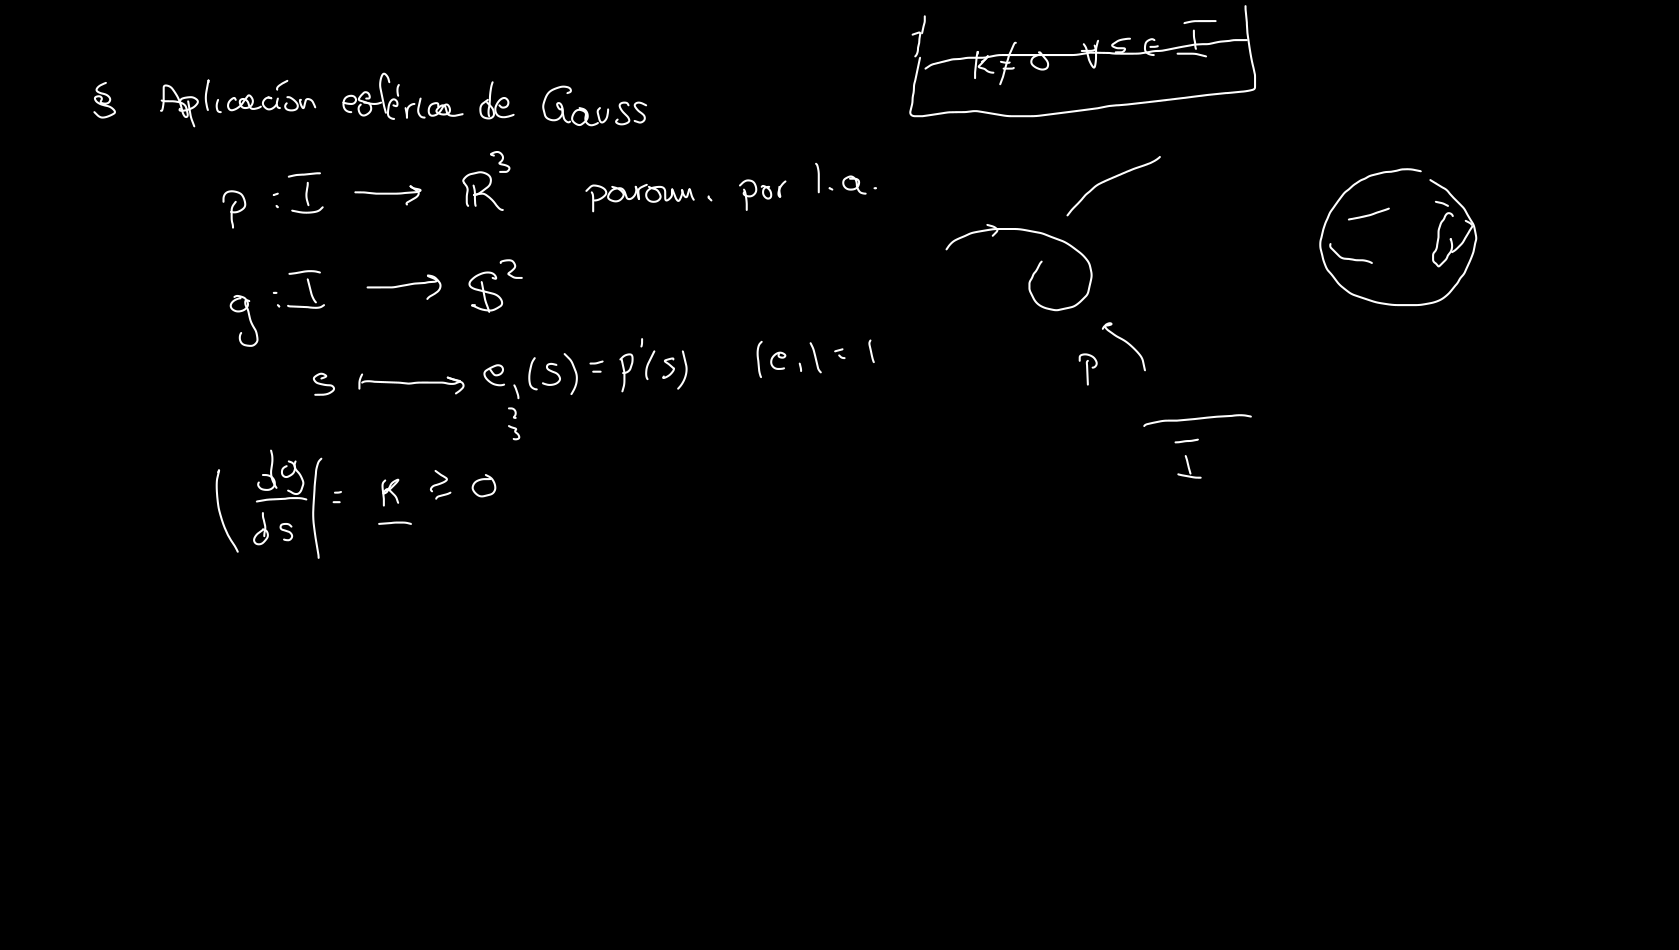 § Aplicación esférica de Gauss
K ≠ 0 ∀ s ∈ I
p : I ⟶ ℝ³ param. por l.a.
g : I ⟶ 𝕊²
s ⟼ e₁(s) = p'(s) |e₁| = 1
2
3
|dg/ds| = K ≥ 0
p
I